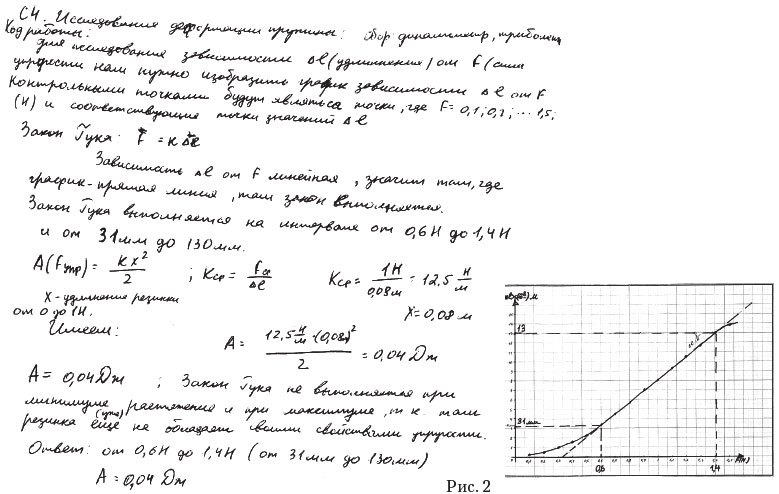 С4. Исследование деформации пружины: Обор: динамометр, приболты
Ход работы:
Для исследования зависимости Δl (удлинения) от F (силы
упругости нам нужно изобразить график зависимости Δl от F
Контрольными точками будут являться точки, где F = 0,1; 0,2; ... 1,5;
(Н) и соответствующие точки значений Δl
Закон Гука: F = K Δl
Зависимость Δl от F линейная, значит там, где
график - прямая линия, там закон выполняется.
Закон Гука выполняется на интервале от 0,6 Н до 1,4 Н
и от 31 мм до 130 мм.
A(Fупр) = Kx²/2 ; Kср = Fср/Δl Kср = 1Н/0,08м = 12,5 Н/м
X - удлинение резинки X = 0,08 м
от 0 до 1Н.
Имеем: A = 12,5 Н/м · (0,08м)²/2 = 0,04 Дж
A = 0,04 Дж ; Закон Гука не выполняется при
минимуме растяжения и при максимуме, т.к. там
резинка ещё (уже) не обладает своими свойствами упругости.
Ответ: от 0,6 Н до 1,4 Н (от 31 мм до 130 мм)
A = 0,04 Дж
13
31 мм
0,6
1,4
F(Н)
Рис. 2